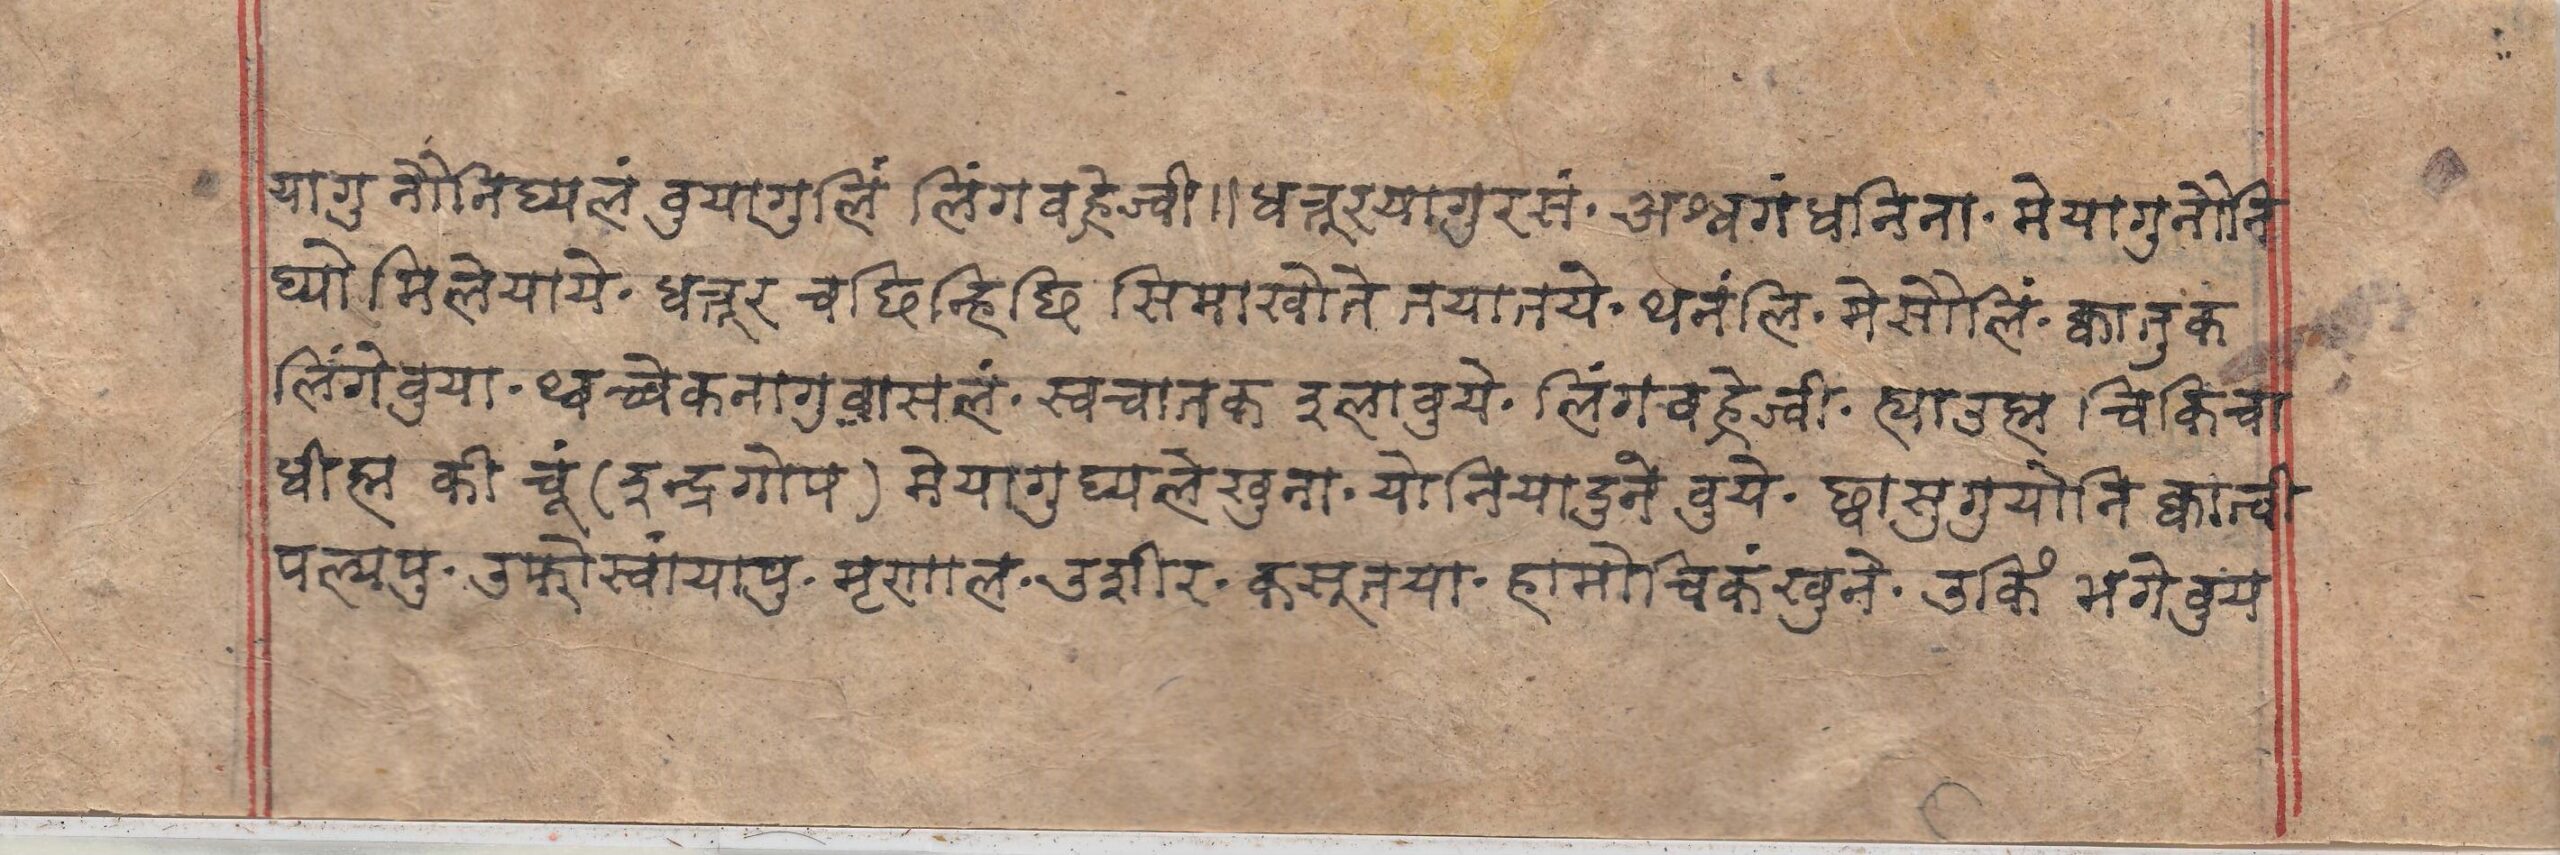 यागु नौनिघ्यलं वुयागुलिं लिंगवह्रेज्वी॥ धत्तूरयागुरसं॰ अश्वगंधनिना॰ मेयागुनौनि
घ्यो मिलेयाये॰ धत्तूर चछिन्हिछि सिमाखोते तयातये॰ थनंलि॰ मेसौलिं॰ क्वातुक
लिंगेवुया॰ थ्वच्वेकनागुवासलं॰ स्वचातक इलावुये॰ लिंगवह्रेज्वी॰ ह्याउह्म चिकिचा
धीह्म की चूं (इन्द्रगोप) मेयागुघ्यलेखुना॰ योनियादुने वुये॰ छ्वासुगुयोनि क्वात्वी
पल्यपु॰ उफोस्वांयापु॰ मृणाल॰ उशीर॰ कसूतया॰ हामोचिकं खुने॰ उकिं भगेवुय